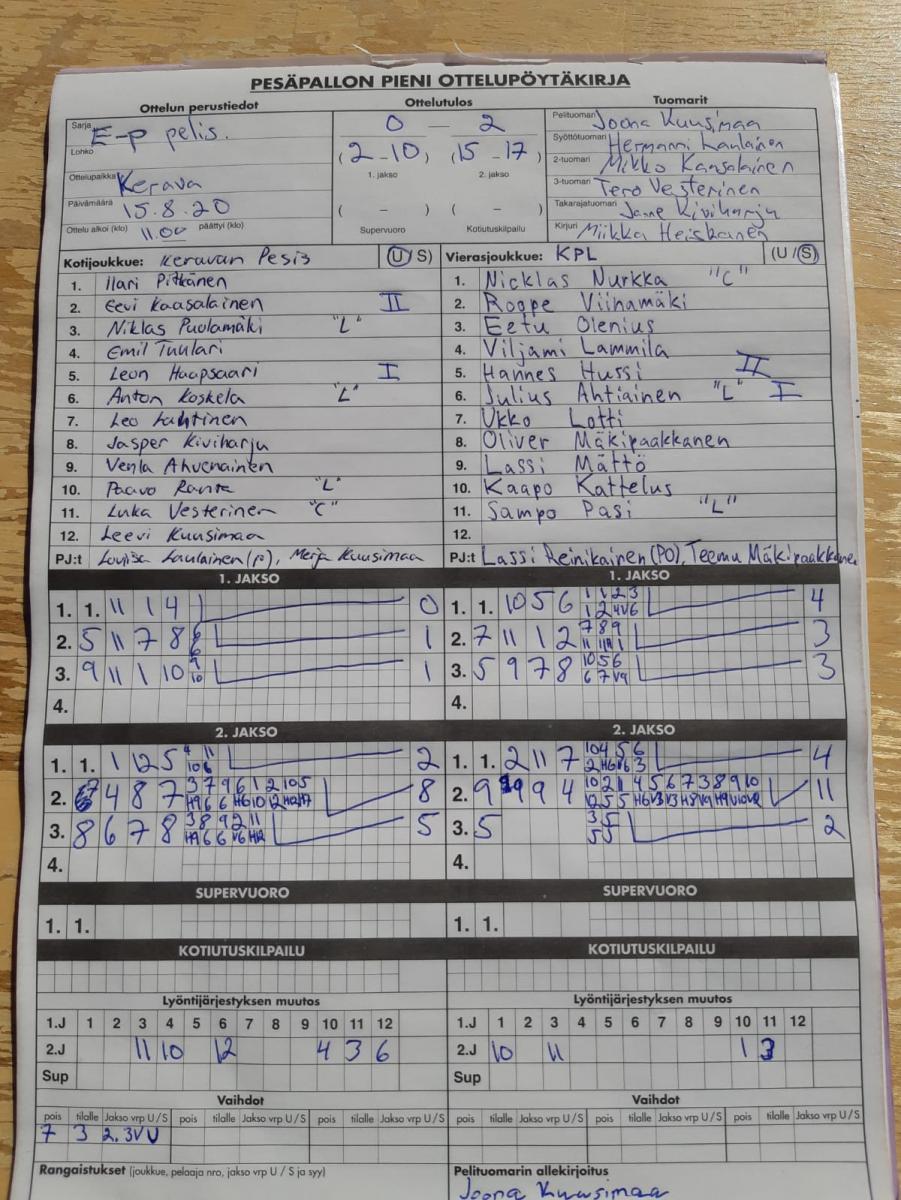 PESÄPALLON PIENI OTTELUPÖYTÄKIRJA
Ottelun perustiedot
Sarja E-p pelis.
Lohko
Ottelupaikka Kerava
Päivämäärä 15.8.20
Ottelu alkoi (klo) 11.00 päättyi (klo)
Ottelutulos
0 – 2
(2 – 10) (15 – 17)
1. jakso 2. jakso
( – ) ( – )
Supervuoro Kotiutuskilpailu
Tuomarit
Pelituomari Joona Kuusimaa
Syöttötuomari Hermanni Laulainen
2-tuomari Mikko Kansalainen
3-tuomari Tero Vesterinen
Takarajatuomari Janne Kiviharju
Kirjuri Miikka Heiskanen
Kotijoukkue: Keravan Pesis (U/S)
1. Ilari Pitkänen
2. Eevi Kaasalainen II
3. Niklas Puolamäki "L"
4. Emil Tuulari
5. Leon Haapsaari I
6. Anton Koskela "L"
7. Leo Lahtinen
8. Jasper Kiviharju
9. Venla Ahvenainen
10. Paavo Ranta "L"
11. Luka Vesterinen "C"
12. Leevi Kuusimaa
PJ:t Louisa Laulainen (P), Merja Kuusimaa
Vierasjoukkue: KPL (U/S)
1. Nicklas Nurkka "C"
2. Roope Viinamäki
3. Eetu Olenius
4. Viljami Lammila
5. Hannes Hussi II
6. Julius Ahtiainen "L" I
7. Ukko Lotti
8. Oliver Mäkipaakkanen
9. Lassi Mättö
10. Kaapo Kattelus
11. Sampo Pasi "L"
12.
PJ:t Lassi Reinikainen (PO), Teemu Mäkipaakkanen
1. JAKSO
1. 1. 11 1 4 0
2. 5 11 7 8 1
3. 9 11 1 10 1
4.
1. JAKSO
1. 1. 10 5 6 4
2. 7 11 1 2 3
3. 5 9 7 8 3
4.
2. JAKSO
1. 1. 1 12 5 2
2. 4 8 7 8
3. 8 6 7 8 5
4.
2. JAKSO
1. 1. 2 11 7 4
2. 9 9 4 11
3. 5 2
4.
SUPERVUORO
1. 1.
SUPERVUORO
1. 1.
KOTIUTUSKILPAILU
KOTIUTUSKILPAILU
Lyöntijärjestyksen muutos
1.J 1 2 3 4 5 6 7 8 9 10 11 12
2.J 11 10 12 4 3 6
Sup
Lyöntijärjestyksen muutos
1.J 1 2 3 4 5 6 7 8 9 10 11 12
2.J 10 11 1 3
Sup
Vaihdot
pois tilalle Jakso vrp U/S pois tilalle Jakso vrp U/S pois tilalle Jakso vrp U/S
7 3 2. 3V U
Vaihdot
pois tilalle Jakso vrp U/S pois tilalle Jakso vrp U/S pois tilalle Jakso vrp U/S
Rangaistukset (joukkue, pelaaja nro, jakso vrp U / S ja syy)
Pelituomarin allekirjoitus
Joona Kuusimaa